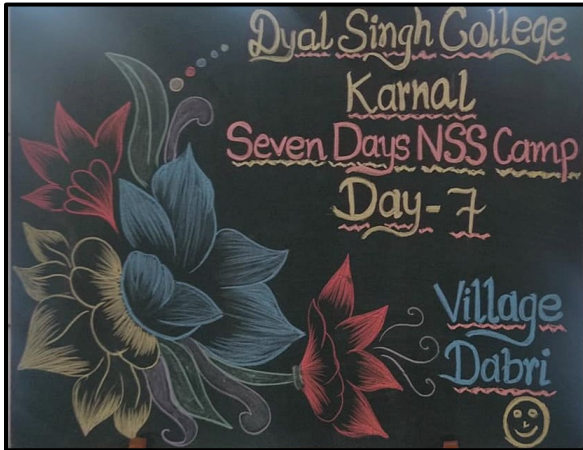 Dyal Singh College
Karnal
Seven Days NSS Camp
Day-7
Village
Dabri